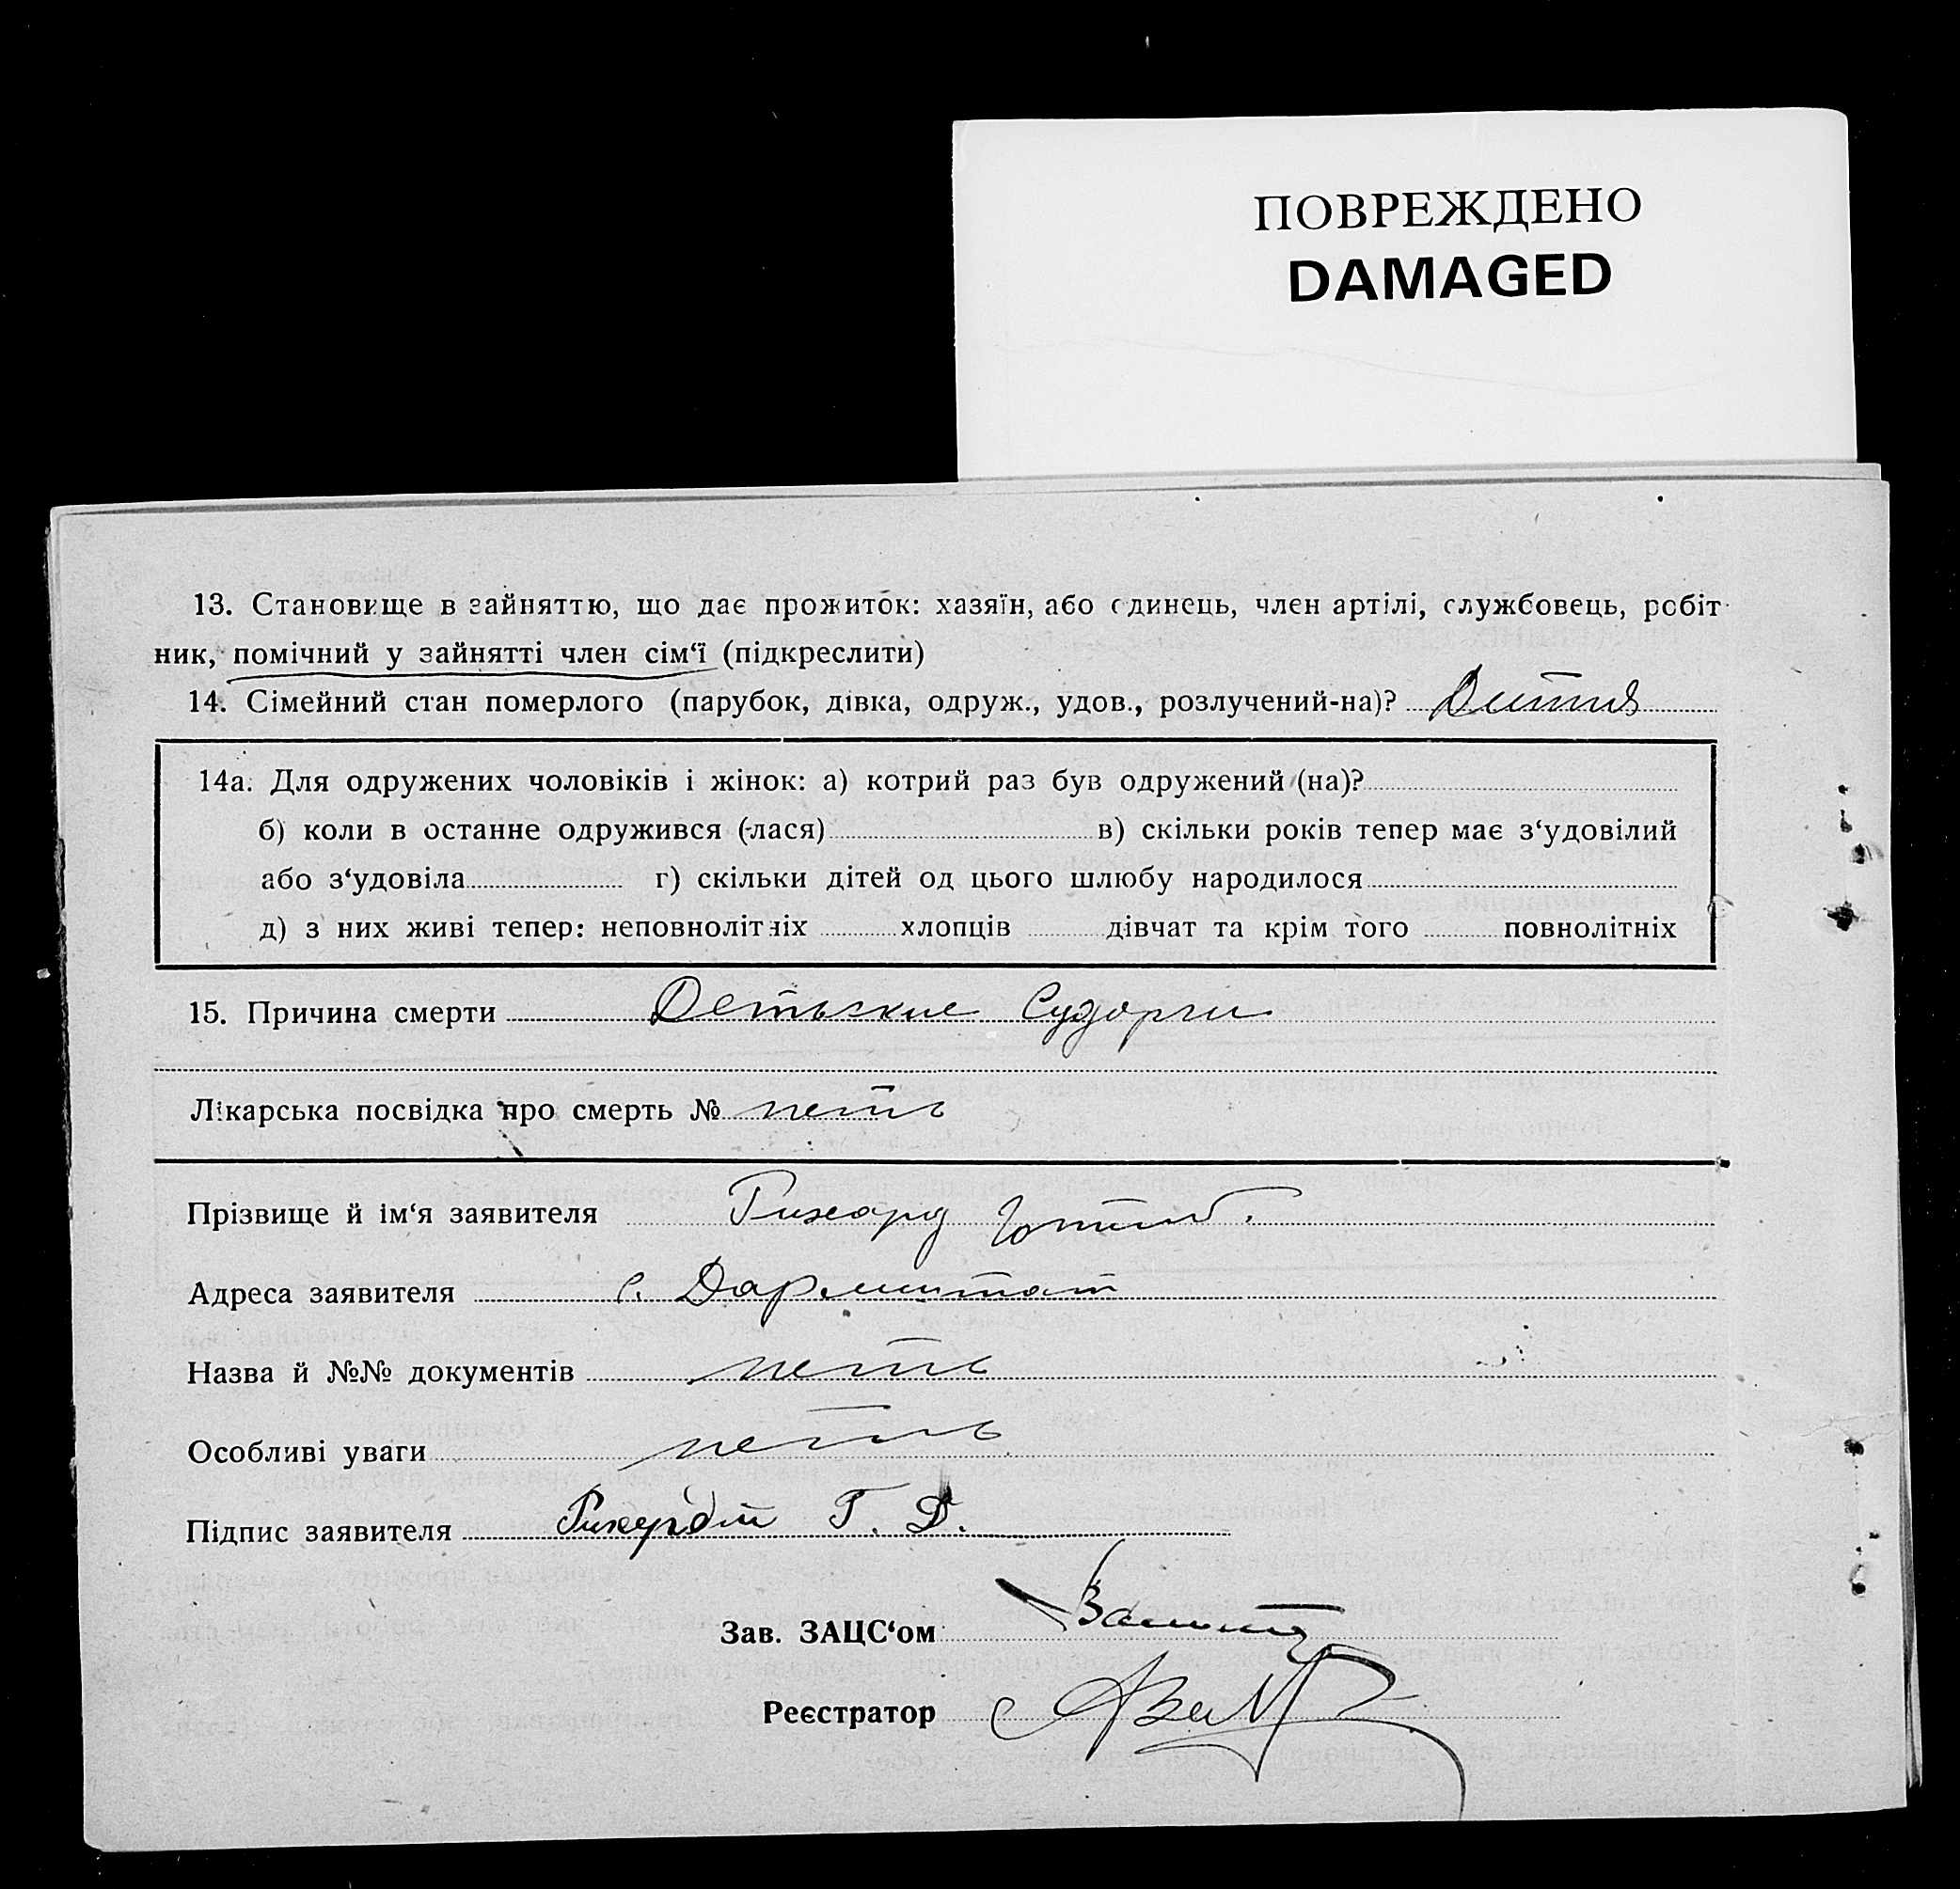 ПОВРЕЖДЕНО
DAMAGED
13. Становище в зайняттю, що дає прожиток: хазяїн, або єдинець, член артілі, службовець, робіт
ник, помічний у зайнятті член сім‘ї (підкреслити)
14. Сімейний стан померлого (парубок, дівка, одруж., удов., розлучений-на)? Дития
14а. Для одружених чоловіків і жінок: а) котрий раз був одружений (на)?
б) коли в останне одружився (-лася) в) скільки років тепер має з‘удовілий
або з‘удовіла г) скільки дітей од цього шлюбу народилося
д) з них живі тепер: неповнолітніх хлопців дівчат та крім того повнолітніх
15. Причина смерти Детьские Судорги
Лікарська посвідка про смерть № неть
Прізвище й ім‘я заявителя Рихард
Адреса заявителя с. Дармштат
Назва й №№ документів неть
Особливі уваги неть
Підпис заявителя Г. Д.
Зав. ЗАЦС‘ом
Реєстратор